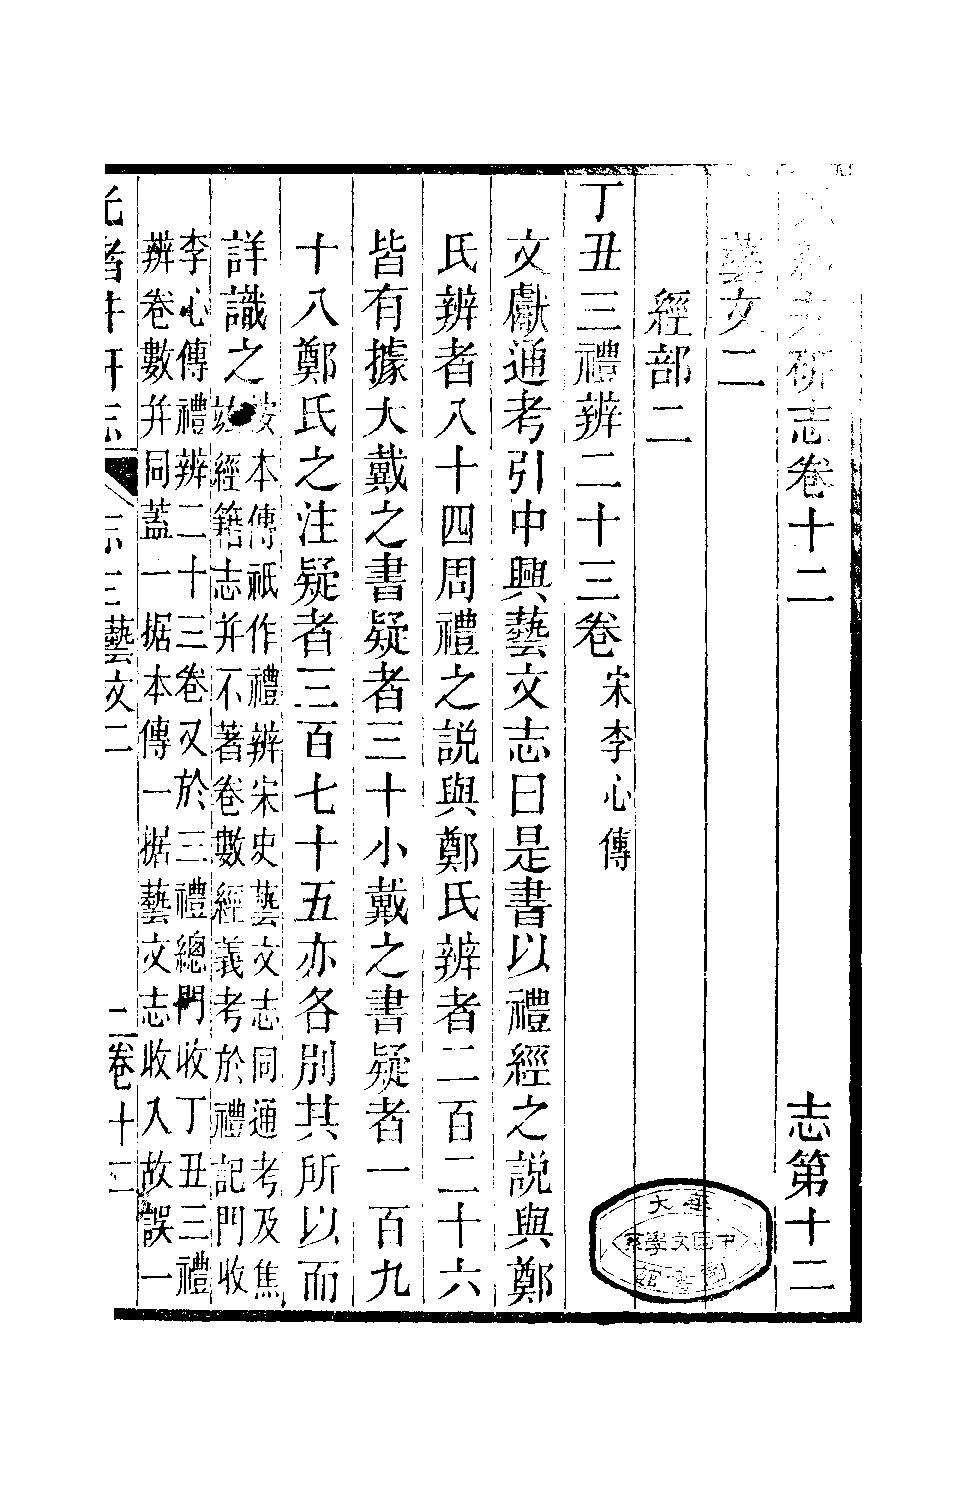 研志卷十二　志第十二
藝文二
經部二
丁丑三禮辨二十三卷 宋李心傳
文獻通考引中興藝文志曰是書以禮經之說與鄭
氏辨者八十四周禮之說與鄭氏辨者二百二十六
皆有據大戴之書疑者三十小戴之書疑者一百九
十八鄭氏之注疑者三百七十五亦各別其所以而
詳識之
按本傳祇作禮辨宋史藝文志同通考及焦
竑經籍志并不著卷數經義考於禮記門收
李心傳禮辨二十三卷又於三禮總門收丁丑三禮
辨卷數并同蓋一据本傳一据藝文志收入故誤一
藝文二
二
卷十二